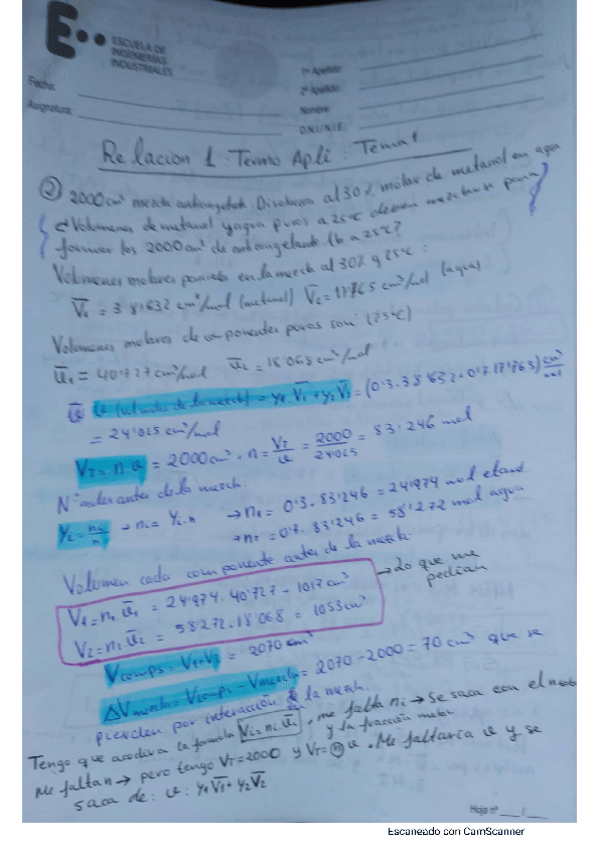 E••
ESCUELA DE
INGENIERÍAS
INDUSTRIALES
1er Apellido:
2º Apellido:
Nombre:
D.N.I/N.I.E.:
Fecha:
Asignatura:
Relacion 1 Termo Apli : Tema 1
② 2000 cm³ mezcla anticongelante. Disolucion al 30% molar de metanol en agua
¿Volumenes de metanol y agua puros a 25ºC deben mezclarse para
formar los 2000 cm³ de anticongelante tb a 25ºC?
Volumenes molares parciales en la mezcla al 30% y 25ºC :
V̅₁ = 38'632 cm³/mol (metanol) V̅₂ = 17'765 cm³/mol (agua)
Volumenes molares de componentes puros son: (25ºC)
u̅₁ = 40'727 cm³/mol u̅₂ = 18'068 cm³/mol
= y₁·V̅₁ + y₂V̅₂ = (0'3·38'632+0'7·17'765) cm³/mol
= 24'025 cm³/mol
V_T = n·v = 2000cm³. n = V_T/v = 2000/24'025 = 83'246 mol
Nº moles antes de la mezcla
yᵢ = nᵢ/n → nᵢ = yᵢ·n → n₁ = 0'3·83'246 = 24'974 mol
→ n₂ = 0'7·83'246 = 58'272 mol agua
Volumen cada componente antes de la mezcla.
V₁ = n₁·u̅₁ = 24'974·40'727 = 1017 cm³
→ Lo que me
pedian
V₂ = n₂·u̅₂ = 58'272·18'068 = 1053 cm³
Vcomps = V₁+V₂ = 2070 cm³
ΔVmezcla = Vcomps - Vmezcla = 2070 - 2000 = 70 cm³ que se
pierden por interacción de la mezcla.
Tengo que acudir a la formula Vᵢ = nᵢ·u̅ᵢ , me falta nᵢ → Se saca con el n
y la fracción molar
Me faltan → pero tengo V_T=2000 y V_T= n v. Me faltaria v y se
saca de: v: y₁V̅₁ + y₂V̅₂
Hoja nº ___/___
Escaneado con CamScanner